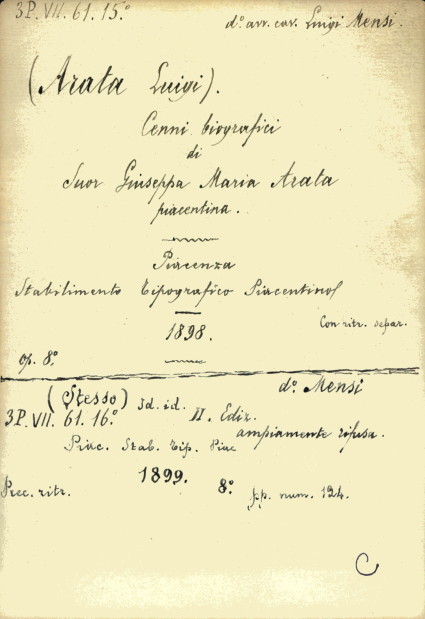 3.P. VII. 61. 15.º
d.º avv. cav. Luigi Mensi.
(Arata Luigi).
Cenni biografici
di
Suor Giuseppa Maria Arata
piacentina.
Piacenza
Stabilimento Tipografico Piacentino
1898.
Con ritr. separ.
op. 8.º
d.º Mensi
(Stesso) Id. id. II. Ediz.
3.P. VII. 61. 16.º
ampiamente rifusa.
Piac. Stab. Tip. Piac
1899.
8.º pp. num. 124.
Prec. ritr.
C